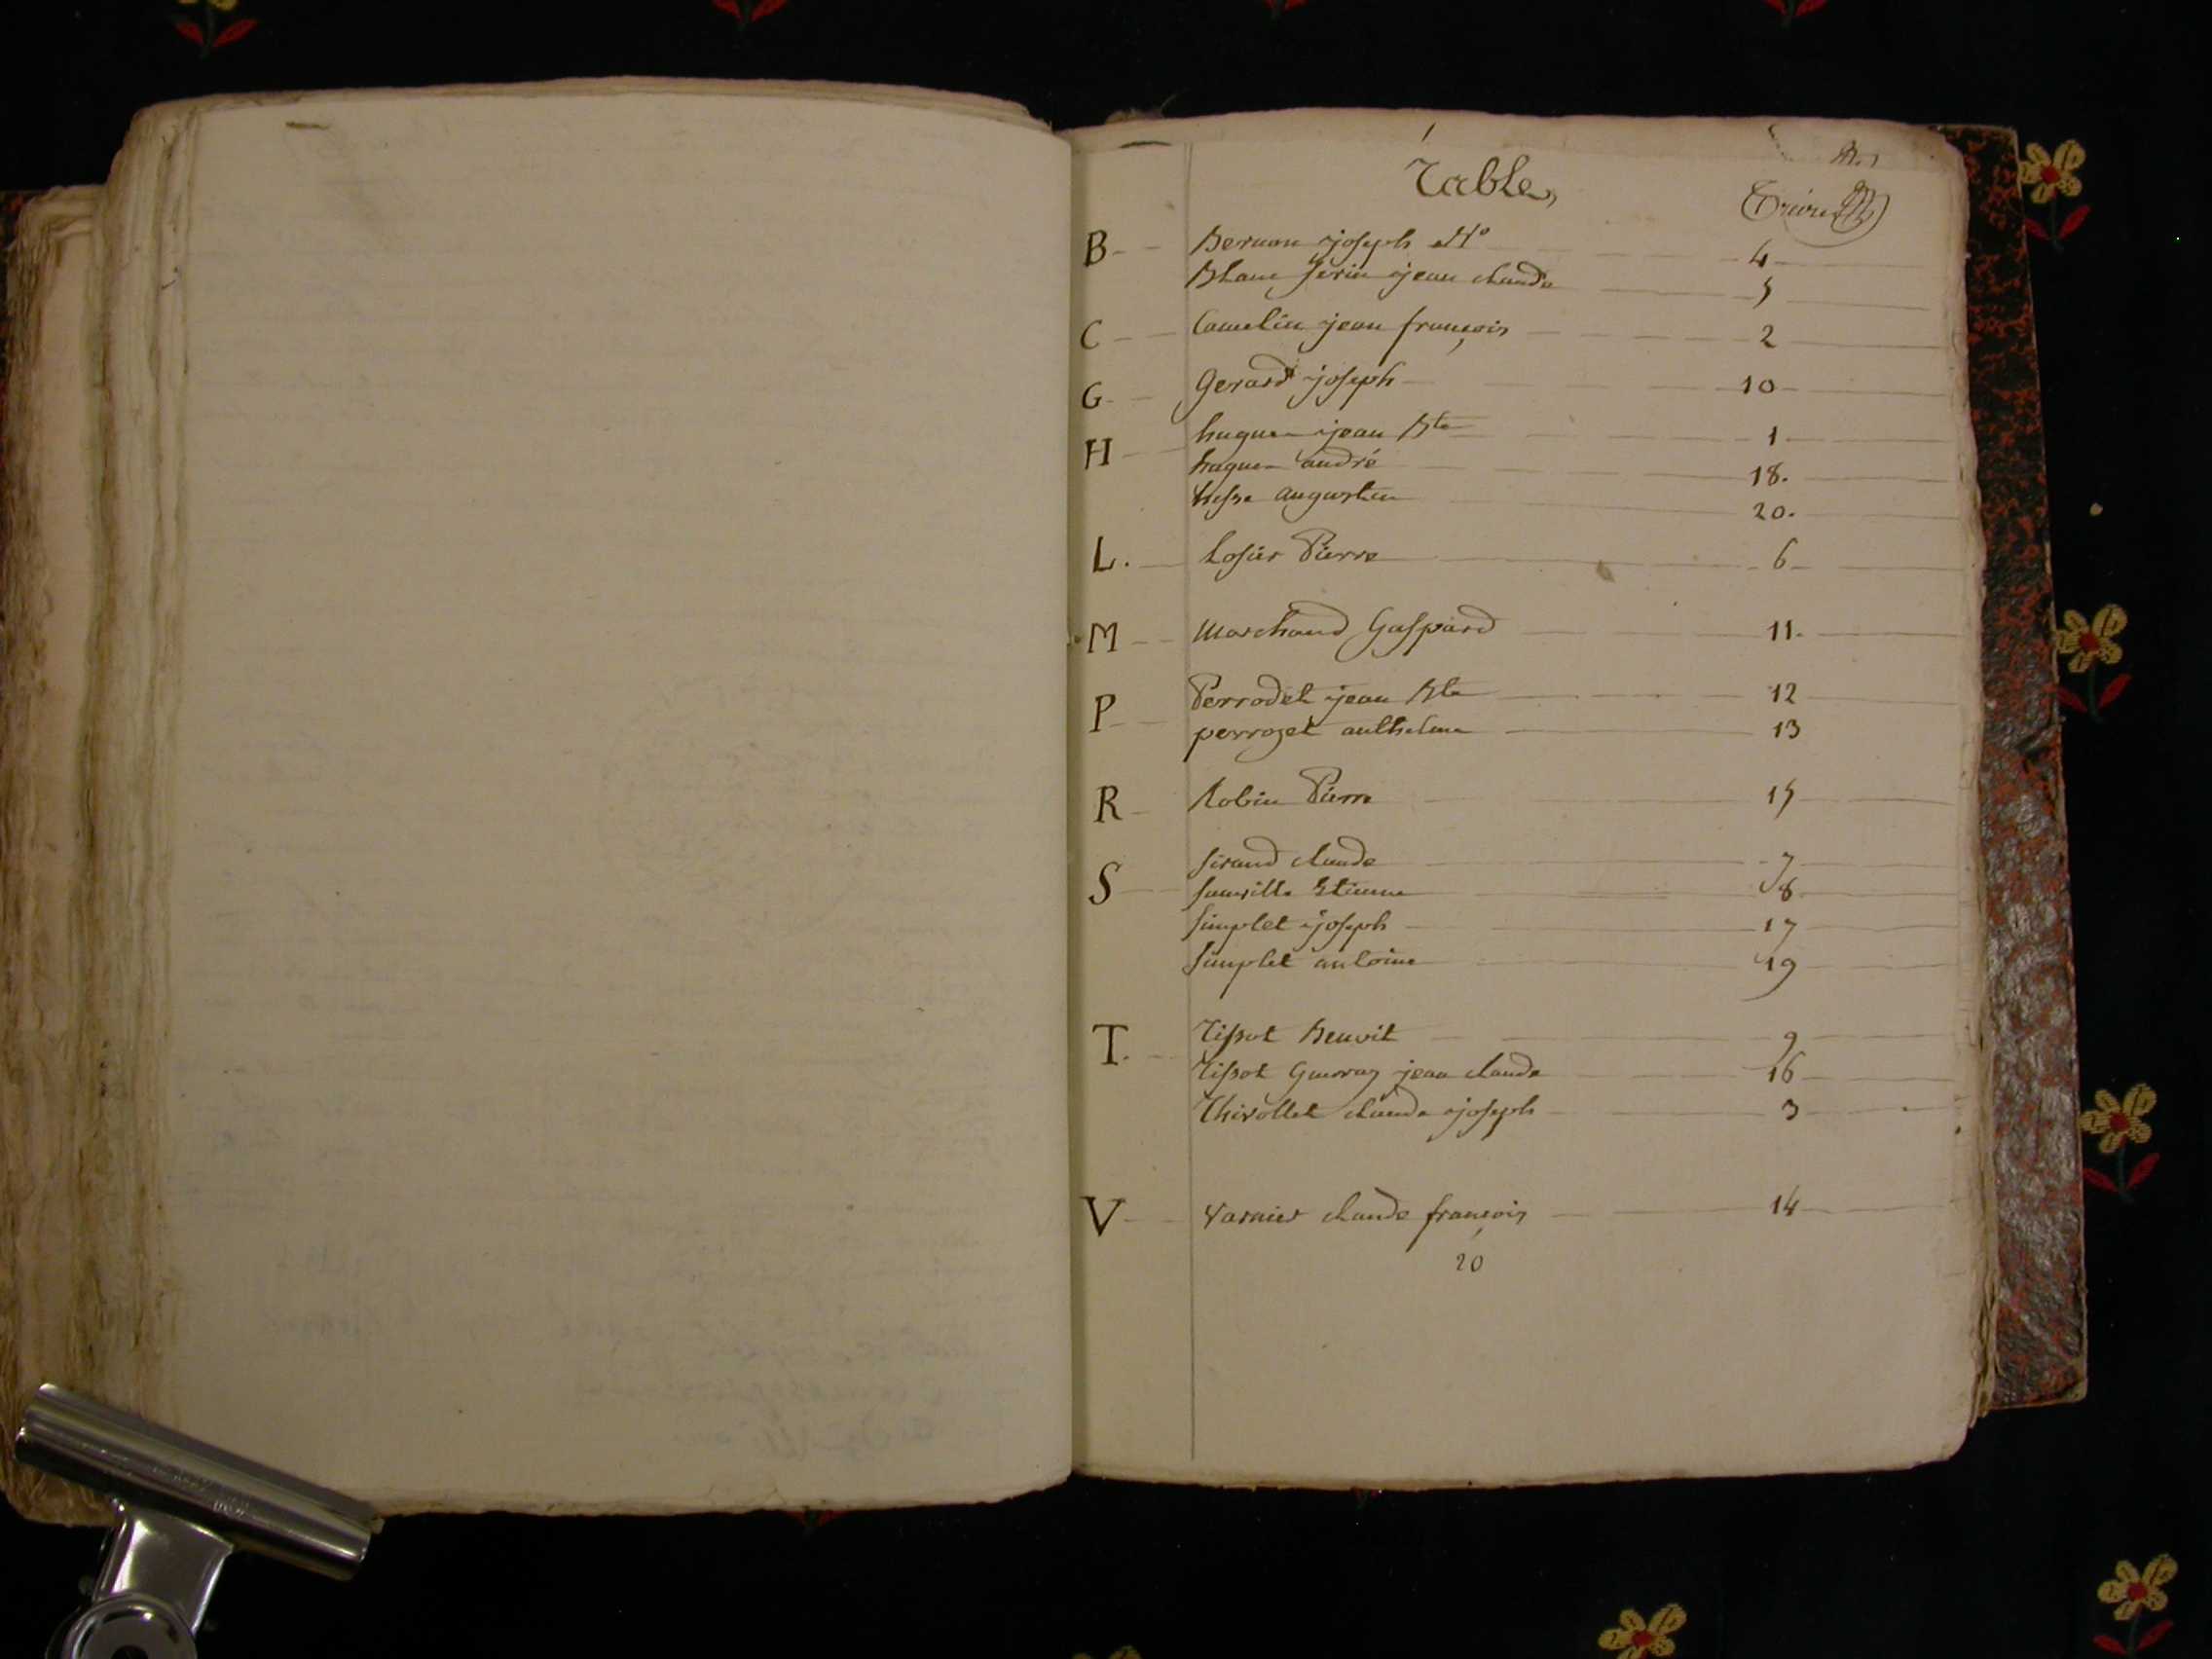 Table,
B Bernon joseph M° 4
Blanc ferin jean claude 5
C Camelin jean françois 2
G Gerard joseph 10
H hugues jean Bte 1
hugues andré 18.
hesse augustin 20.
L. Losier Pierre 6
M Marchand Gaspard 11.
P Perrodet jean Bte 12
perrozet anthelme 13
R Robin Pierre 15
S sirand claude 7
Etienne 8
simplet joseph 17
simplet antoine 19
T. Tissot Benoit 9
Tissot jean claude 16
Thivollet claude joseph 3
V Varnier claude françois 14
20